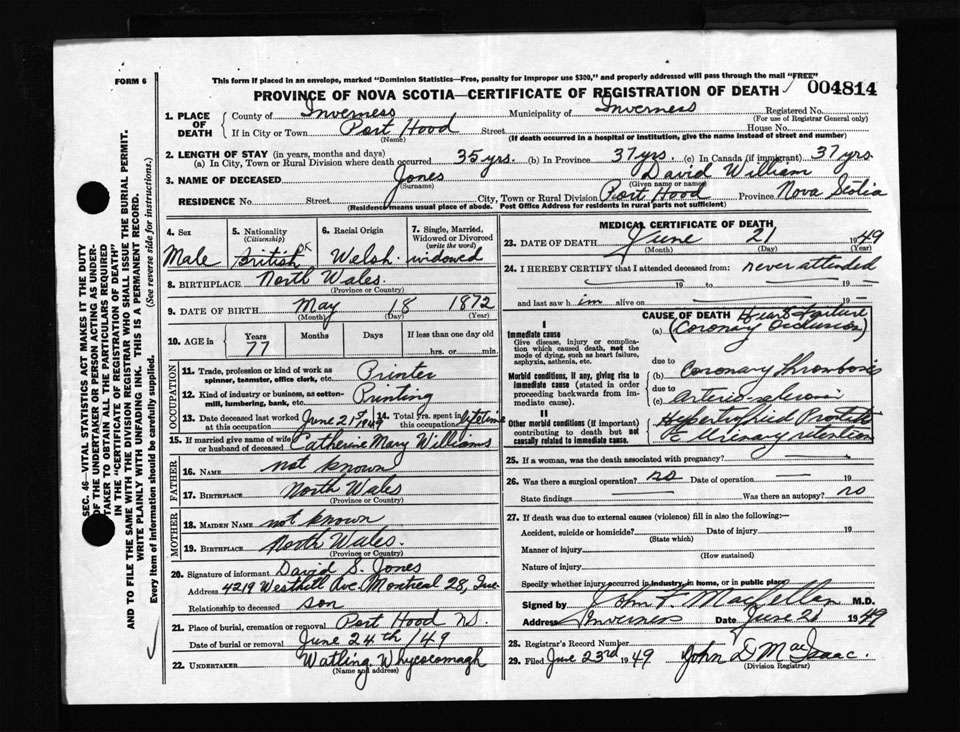 FORM 6
This form if placed in an envelope, marked "Dominion Statistics—Free, penalty for improper use $300," and properly addressed will pass through the mail "FREE"
PROVINCE OF NOVA SCOTIA—CERTIFICATE OF REGISTRATION OF DEATH 004814
1. PLACE OF DEATH
County of Inverness Municipality of Inverness Registered No.
(For use of Registrar General only)
If in City or Town Port Hood Street House No.
(Name) (If death occurred in a hospital or institution, give the name instead of street and number)
2. LENGTH OF STAY (in years, months and days)
(a) In City, Town or Rural Division where death occurred 35 yrs. (b) In Province 37 yrs. (c) In Canada (if immigrant) 37 yrs.
3. NAME OF DECEASED Jones David William
(Surname) (Given name or names)
RESIDENCE No. Street City, Town or Rural Division Port Hood Province Nova Scotia
(Residence means usual place of abode. Post Office Address for residents in rural parts not sufficient)
4. Sex
Male
5. Nationality
(Citizenship)
British OK
6. Racial Origin
Welsh.
7. Single, Married, Widowed or Divorced
(write the word)
widowed
8. BIRTHPLACE North Wales.
(Province or Country)
9. DATE OF BIRTH May 18 1872
(Month) (Day) (Year)
10. AGE in Years Months Days If less than one day old
77 hrs. or min.
OCCUPATION
11. Trade, profession or kind of work as spinner, teamster, office clerk, etc. Printer
12. Kind of industry or business, as cotton-mill, lumbering, bank, etc. Printing
13. Date deceased last worked at this occupation June 21st 1949
14. Total yrs. spent in this occupation lifetime
15. If married give name of wife or husband of deceased Catherine Mary Williams
FATHER
16. NAME not known
17. BIRTHPLACE North Wales
(Province or Country)
MOTHER
18. MAIDEN NAME not known
19. BIRTHPLACE North Wales.
(Province or Country)
20. Signature of informant David S. Jones
Address 4219 Westhill Ave. Montreal 28, Que
Relationship to deceased son
21. Place of burial, cremation or removal Port Hood N.S.
Date of burial or removal June 24th /49
22. UNDERTAKER Watling, Whycocomagh
(Name and address)
MEDICAL CERTIFICATE OF DEATH
23. DATE OF DEATH June 21 1949
(Month) (Day) (Year)
24. I HEREBY CERTIFY that I attended deceased from: never attended
19 to 19
and last saw him alive on 19
CAUSE OF DEATH Heart Failure
I
Immediate cause
Give disease, injury or complication which caused death, not the mode of dying, such as heart failure, asphyxia, asthenia, etc.
(a) (Coronary Occlusion)
due to
Morbid conditions, if any, giving rise to immediate cause (stated in order proceeding backwards from immediate cause).
(b) Coronary thrombosis
due to
(c) arterio-sclerosis
II
Other morbid conditions (if important) contributing to death but not causally related to immediate cause.
Hypertrophied Prostate
& Urinary retention
25. If a woman, was the death associated with pregnancy?
26. Was there a surgical operation? no Date of operation 19
State findings Was there an autopsy? no
27. If death was due to external causes (violence) fill in also the following:—
Accident, suicide or homicide? Date of injury 19
(State which)
Manner of injury
(How sustained)
Nature of injury
Specify whether injury occurred in industry, in home, or in public place
Signed by John F MacLellan M.D.
Address Inverness Date June 21 1949
28. Registrar's Record Number
29. Filed June 23rd 1949 John D MacIsaac.
(Division Registrar)
SEC. 46—VITAL STATISTICS ACT MAKES IT THE DUTY
OF THE UNDERTAKER OR PERSON ACTING AS UNDER-
TAKER TO OBTAIN ALL THE PARTICULARS REQUIRED
IN THE "CERTIFICATE OF REGISTRATION OF DEATH"
AND TO FILE THE SAME WITH THE DIVISION REGISTRAR WHO SHALL ISSUE THE BURIAL PERMIT.
WRITE PLAINLY WITH UNFADING INK. THIS IS A PERMANENT RECORD.
Every item of information should be carefully supplied. (See reverse side for instructions.)